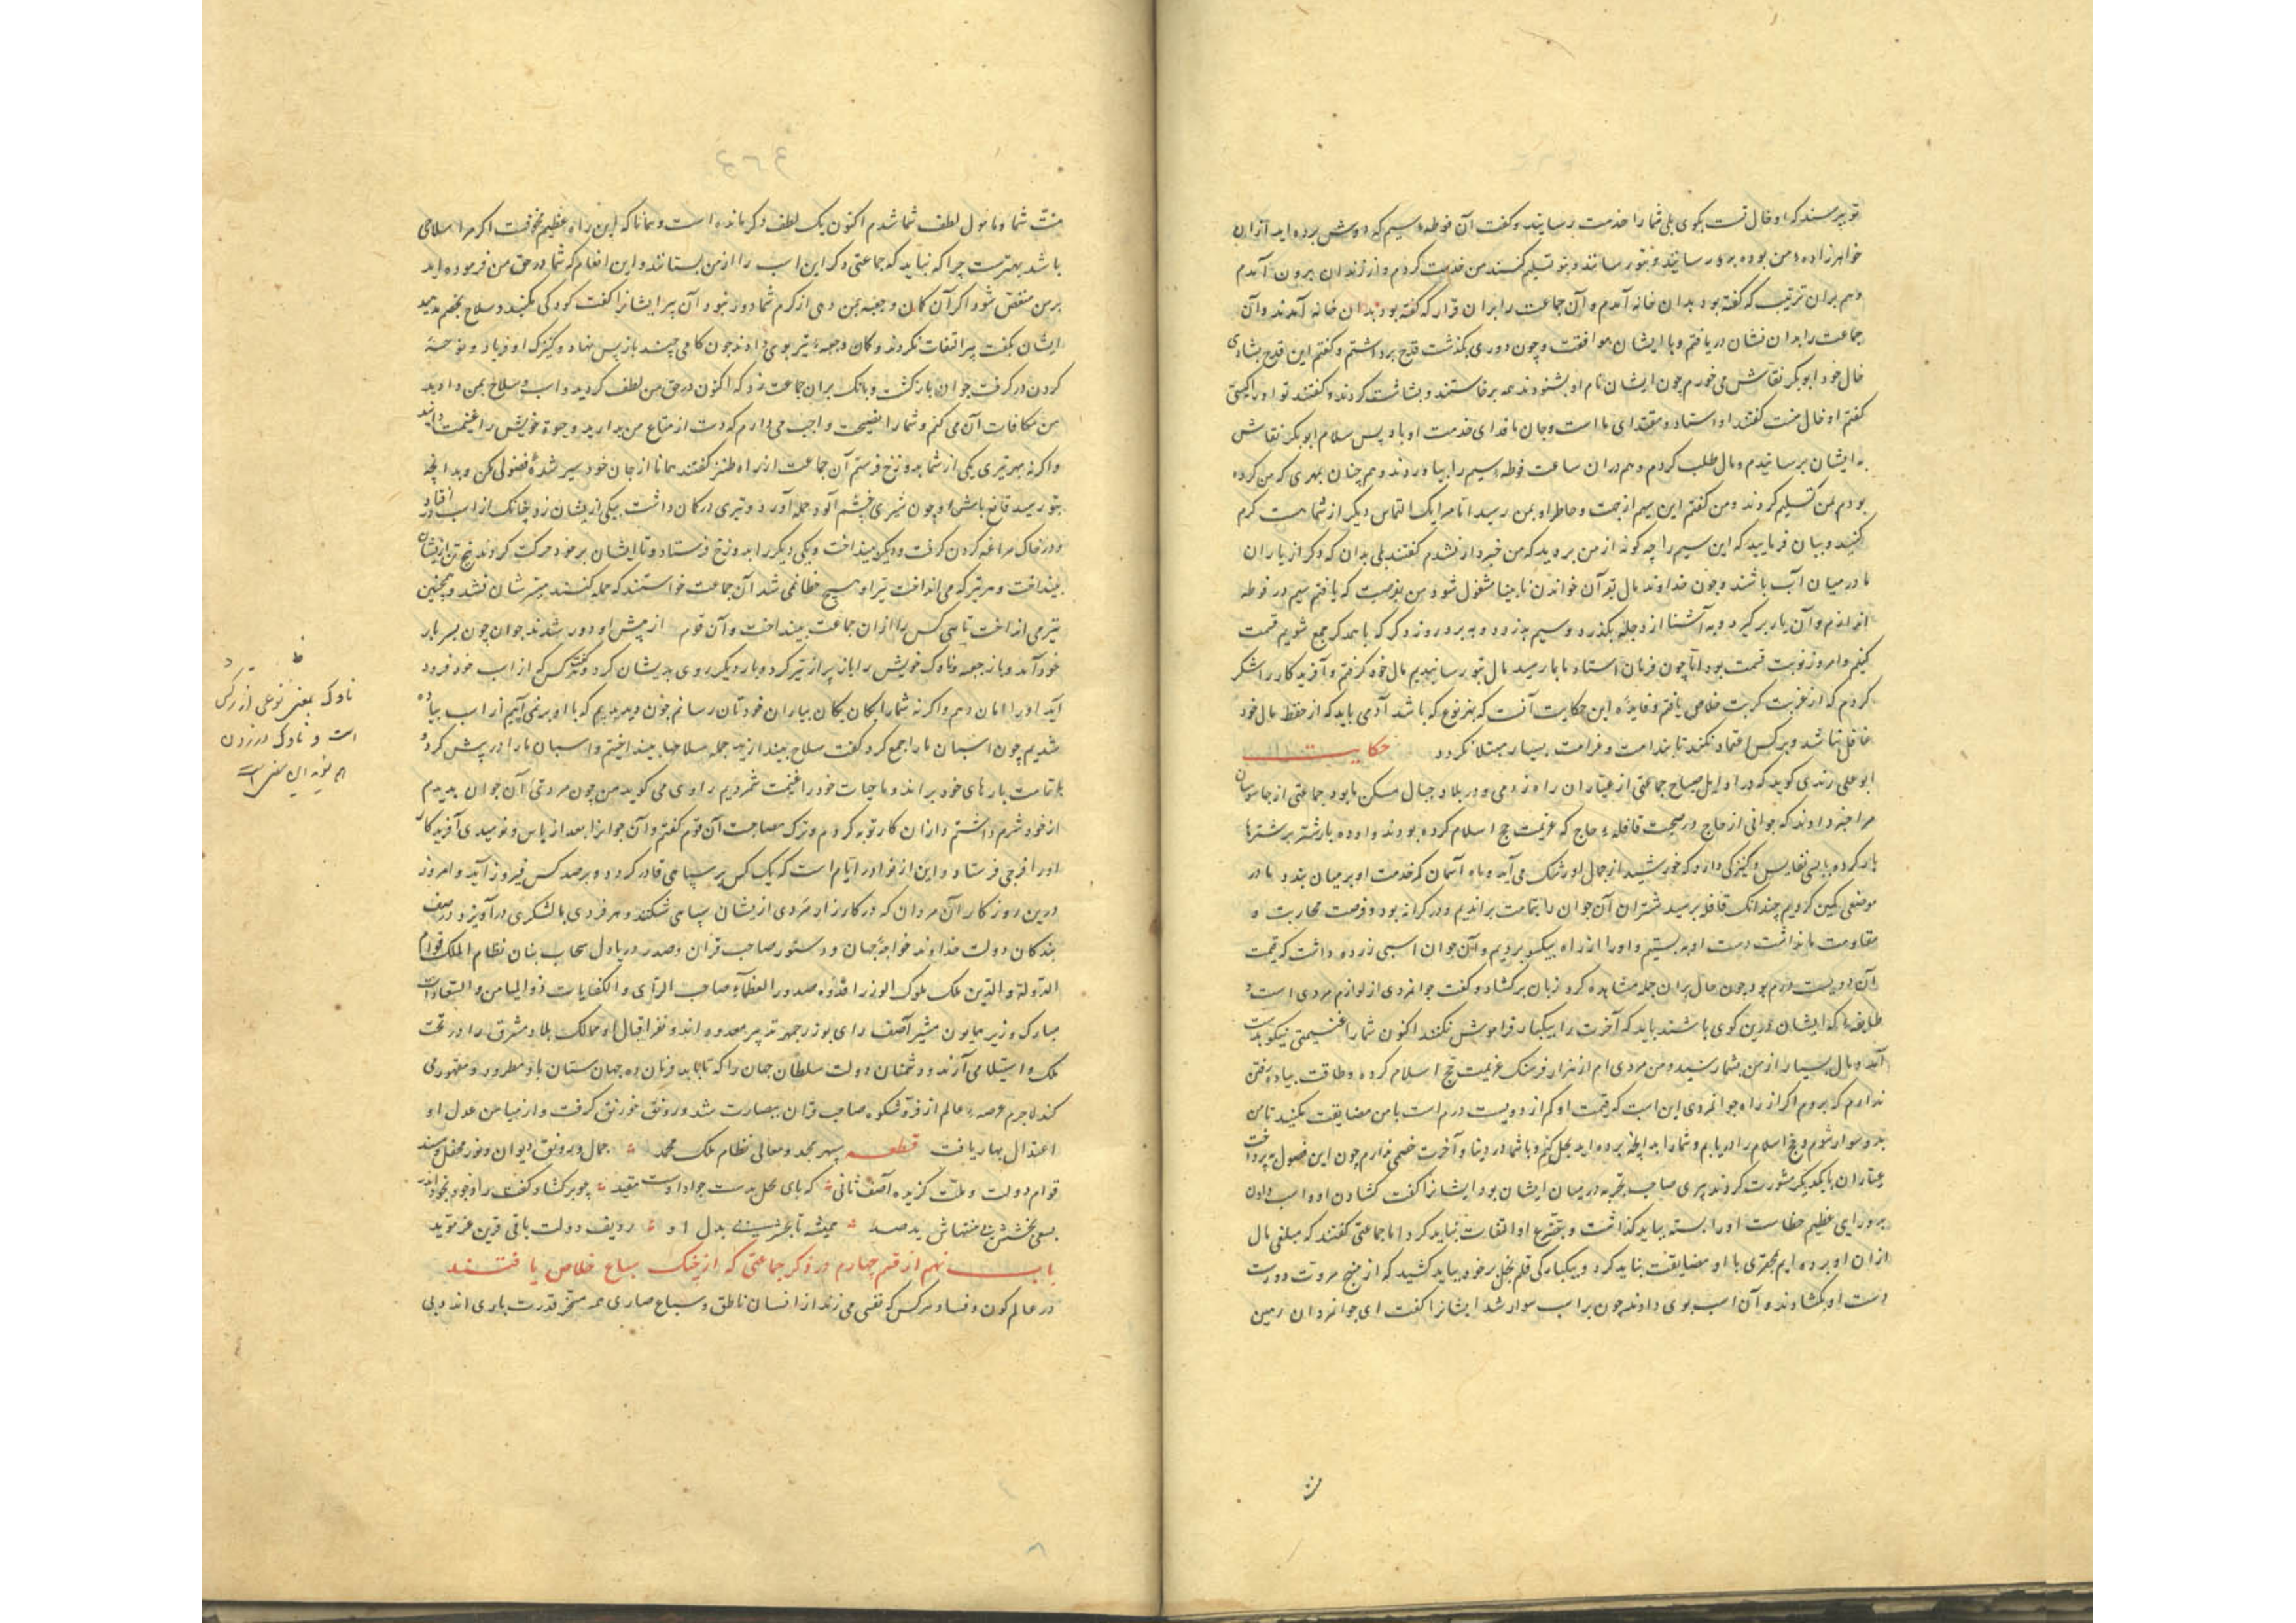 تو پرسند که او خال تست بگوی بلی شما را خدمت رسانید و گفت آن فوطه سیم که دوش برده اید از آن
خواهرزادهٔ من بوده بود رسانید و بتو رسانند و بتو تسلیم کنند من خدمت کردم و از زندان بیرون آمدم
و هم بران ترتیب که گفته بود بدان خانه آمدم و آن جماعت را بران قرار که گفته بود بدان خانه آمدند و آن
جماعت را بدان نشان دریافتم و با ایشان موافقت و چون دوری بگذشت قدح برداشتم و گفتم این قدح بشادی
خال خود ابوبکر نقاش می خورم چون ایشان نام او بشنودند همه برخاستند و بشاشت کردند و گفتند تو او را کیستی
گفتم او خال منست گفتند او استاد و مقتدای ما است و جان ما فدای خدمت او باد پس سلام ابوبکر نقاش
به ایشان برسانیدم و مال طلب کردم و هم دران ساعت فوطه سیم را بیاوردند و هم چنان بمهری که من کرده
بودم بمن تسلیم کردند و من گفتم این سیم از جهت و خاطر او بمن رسید اما مرا یک التماس دیگر از شما هست کرم
کنید و بیان فرمایید که این سیم را چه گونه از من بردید که من خبردار نشدم گفتند بلی بدان که دگر از یاران
ما در میان آب باشند و چون خداوند مال بقرآن خواندن نابینا مشغول شود من بفرصت که یافتم سیم در فوطه
اندازم و آن یار بر گیرد و به آشنا از دجله بگذرد و سیم بدزدد و ببرد و روز دگر که با همدگر جمع شویم قسمت
کنیم و امروز نوبت قسمت بود اما چون فرمان استاد ما بما رسید مال بتو رسانیدیم مال خود گرفتم و آفریدگار را شکر
کردم که از غربت کربت خلاص یافتم و فایدهٔ این حکایت آنست که بهر نوع که باشد آدمی باید که از حفظ مال خود
غافل نباشد و بر کس اعتماد نکند تا بندامت و غرامت بسیار مبتلا نگردد حکایت
ابوعلی رندی گوید که در اوایل صباح جماعتی از عیاران راه زدمی و در بلاد جبال مسکن ما بود جماعتی از جاسوسان
مرا خبر دادند که جوانی از حاج در صحبت قافلهٔ حاج که عزیمت حج اسلام کرده بودند و او ده یار شتر بر شترها
بار کرده بایی نفایس و کنیزکی دارد که خورشید از جمال او رشک می آید و ماه آسمان که خدمت او بر میان بندد ما در
موضعی کمین کردیم چندانک قافله برسید شتران آن جوان را بتمامت براندیم و در کرانه بود و فرصت محاربت و
مقاومت ما نداشت دست او به بستیم و او را از راه بیکسو بردیم و آن جوان اسبی زرده داشت که قیمت
آن دویست درم بود چون حال بران جمله مشاهده کرد زبان برگشاد و گفت جوانمردی از لوازم مردی است و
طایفهٔ که ایشان درین کوی باشند باید که آخرت را بیکبار فراموش نکنند اکنون شما را غنیمتی نیکو بدست
آمد و مال بسیار از من بشما رسید و من مردی ام از هزار فرسنگ عزیمت حج اسلام کرده و طاقت پیاده رفتن
ندارم که بروم اگر از راه جوانمردی این اسب که قیمت او کم از دویست درم است با من مضایقت نکنید تا من
بدو سوار شوم و حج اسلام را دریابم و شما را بدانچه برده اید بحل کنم و با شما در دنیا و آخرت خصمی ندارم چون این فصول بپرداخت
عیاران با یکدیگر مشورت کردند پیری صاحب تجربه در میان ایشان بود ایشانرا گفت گشادن او و اسب دادن
بدو رایی عظیم خطاست او را بسته بباید گذاشت و بتضرع او التفات نباید کرد اما جماعتی گفتند که مبلغی مال
از ان او برده ایم بمحقری با او مضایقت نباید کرد و بیکبارگی قلم بخل بر خود نباید کشید که از منهج مروت دورست
دست او بگشادند و آن اسب بوی دادند چون بر اسب سوار شد ایشانرا گفت ای جوانمردان رهین
منت شما و مامول لطف شما شدم اکنون یک لطف دگر مانده است و همانا که این راه عظیم مخوفست اگر مرا سلاحی
باشد بهترست چرا که نباید که جماعتی دگر این اسب را از من بستانند و این انعام که شما در حق من فرموده اید
بر من منغص شود اگر آن کمان و جعبه بمن دهی از کرم شما دور نبود آن پیر ایشانرا گفت کودکی مکنید و سلاح بخصم مدهید
ایشان بگفت پیر التفات نکردند و کمان و جعبهٔ تیر بوی دادند چون گامی چند باز پس نهاد و کنیزک او فریاد و نوحه
کردن در گرفت جوان بازگشت و بانگ بران جماعت زد که اکنون در حق من لطف کردید و اسب و سلاح بمن دادید
من مکافات آن می کنم و شما را نصیحت واجب می دارم که دست از متاع من بدارید و حیوة خویش را غنیمت دانید
و اگرنه بهر تیری یکی از شما بدوزخ فرستم آن جماعت از راه طنز گفتند همانا از جان خود سیر شدهٔ فضولی مکن و بدانچه
بتو رسید قانع باش او چون شیری خشم آلود حمله آورد و تیری در کمان داشت بیکی ازیشان زد چنانک از اسب در افتاد
و در خاک مراغه کردن گرفت و دیگر بینداخت و یکی دیگر را بدوزخ فرستاد و تا ایشان بر خود حرکت کردند پنج تن ازیشان
بینداخت و هر تیر که می انداخت تیر او هیچ خطا نمی شد آن جماعت خواستند که حمله کنند میسرشان نشد و همچنین
تیر می انداخت تا سی کس را ازان جماعت بینداخت و آن قوم از پیش او دور شدند جوان چون بسر بار
خود آمد و باز جعبه و ناوک خویش را باز پر از تیر کرد و بار دیگر روی بدیشان کرد و گفت هر کس که از اسب خود فرود
آید او را امان دهم و اگرنه شما را یکان یکان بیاران خودتان رسانم چون دیدیم که با او بر نمی آییم از اسب پیاده
شدیم چون اسبان ما را جمع کرد گفت سلاح بیندازید جمله سلاحها بینداختیم و اسبان ما را در پیش کرد و
بتمامت بارهای خود براند و ما حیات خود را غنیمت شمردیم راوی می گوید من چون مردی آن جوان بدیدم
از خود شرم داشتم و ازان کار توبه کردم و ترک مصاحبت آن قوم گفتم و آن جوانرا بعد از یاس و نومیدی آفریدگار
او را فرجی فرستاد و این از نوادر ایام است که یک کس بر سپاهی قادر گردد و بر صد کس فیروز آید و امروز
درین روزگار آن مردان که در کارزار مردی ازیشان سپاهی شکند و هر فردی با لشکری درآویزد در صف
بندگان دولت خداوند خواجهٔ جهان و دستور صاحب قران و صدر دریادل سحاب بنان نظام الملک قوام
الدولة و الدین ملک ملوک الوزرا قدوه صدور العظماء صاحب الرای و الکفایات ذوالمیامن و السعادات
مبارک وزیر همایون مشیر آصف رای بوزرجمهر تدبیر معدودند و نفر اقبال او ممالک بلاد مشرق را در تحت
ملک و استیلا می آرند و دشمنان دولت سلطان جهان را که تا بابد فرمان ده جهان ستان باد مطرود و مقهور می
کند لاجرم عرصهٔ عالم از فر و شکوه صاحب قران بنضارت شد و رونق خورنق گرفت و از میامن عدل او
اعتدال بهار یافت قطعه سپهر مجد و معالی نظام ملک محمد جمال و رونق دیوان و نور محفل و مسند
قوام دولت و ملت گزیده آصف ثانی که پای بخل بدست جواد اوست مقید چو برگشاد کف راد جود
بسعی بخشش بی منتهاش همیشه تا بدل او ردیف دولت باقی قرین عز موید
باب نهم از قسم چهارم در ذکر جماعتی که از چنگ سباع خلاص یافتند
در عالم کون و فساد هر کس که نفسی می زند از انسان ناطق و سباع ضاری همه مسخر قدرت باری اند و بی
ناوک بمعنی نوعی از
است و ناوک در زدن